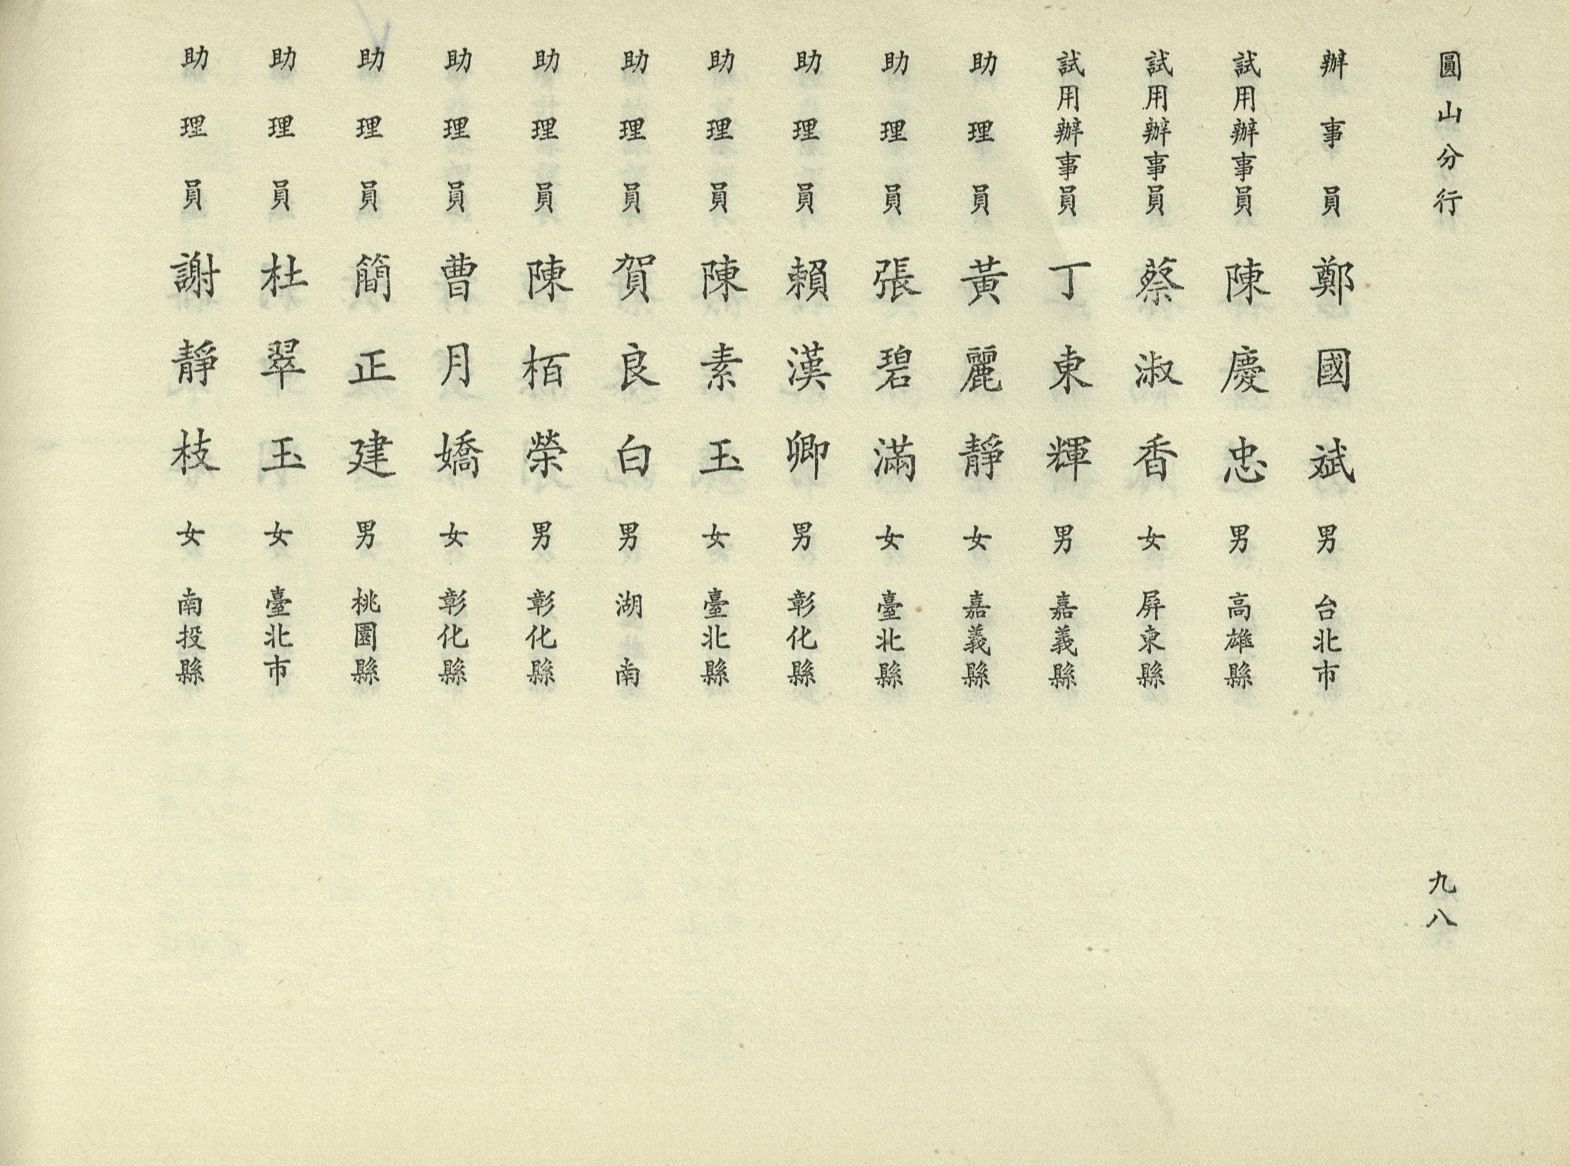 圓山分行
九八
辦事員 鄭國斌 男 台北市
試用辦事員 陳慶忠 男 高雄縣
試用辦事員 蔡淑香 女 屏東縣
試用辦事員 丁東輝 男 嘉義縣
助理員 黃麗靜 女 嘉義縣
助理員 張碧滿 女 臺北縣
助理員 賴漢卿 男 彰化縣
助理員 陳素玉 女 臺北縣
助理員 賀良白 男 湖南
助理員 陳栢榮 男 彰化縣
助理員 曹月嬌 女 彰化縣
助理員 簡正建 男 桃園縣
助理員 杜翠玉 女 臺北市
助理員 謝靜枝 女 南投縣